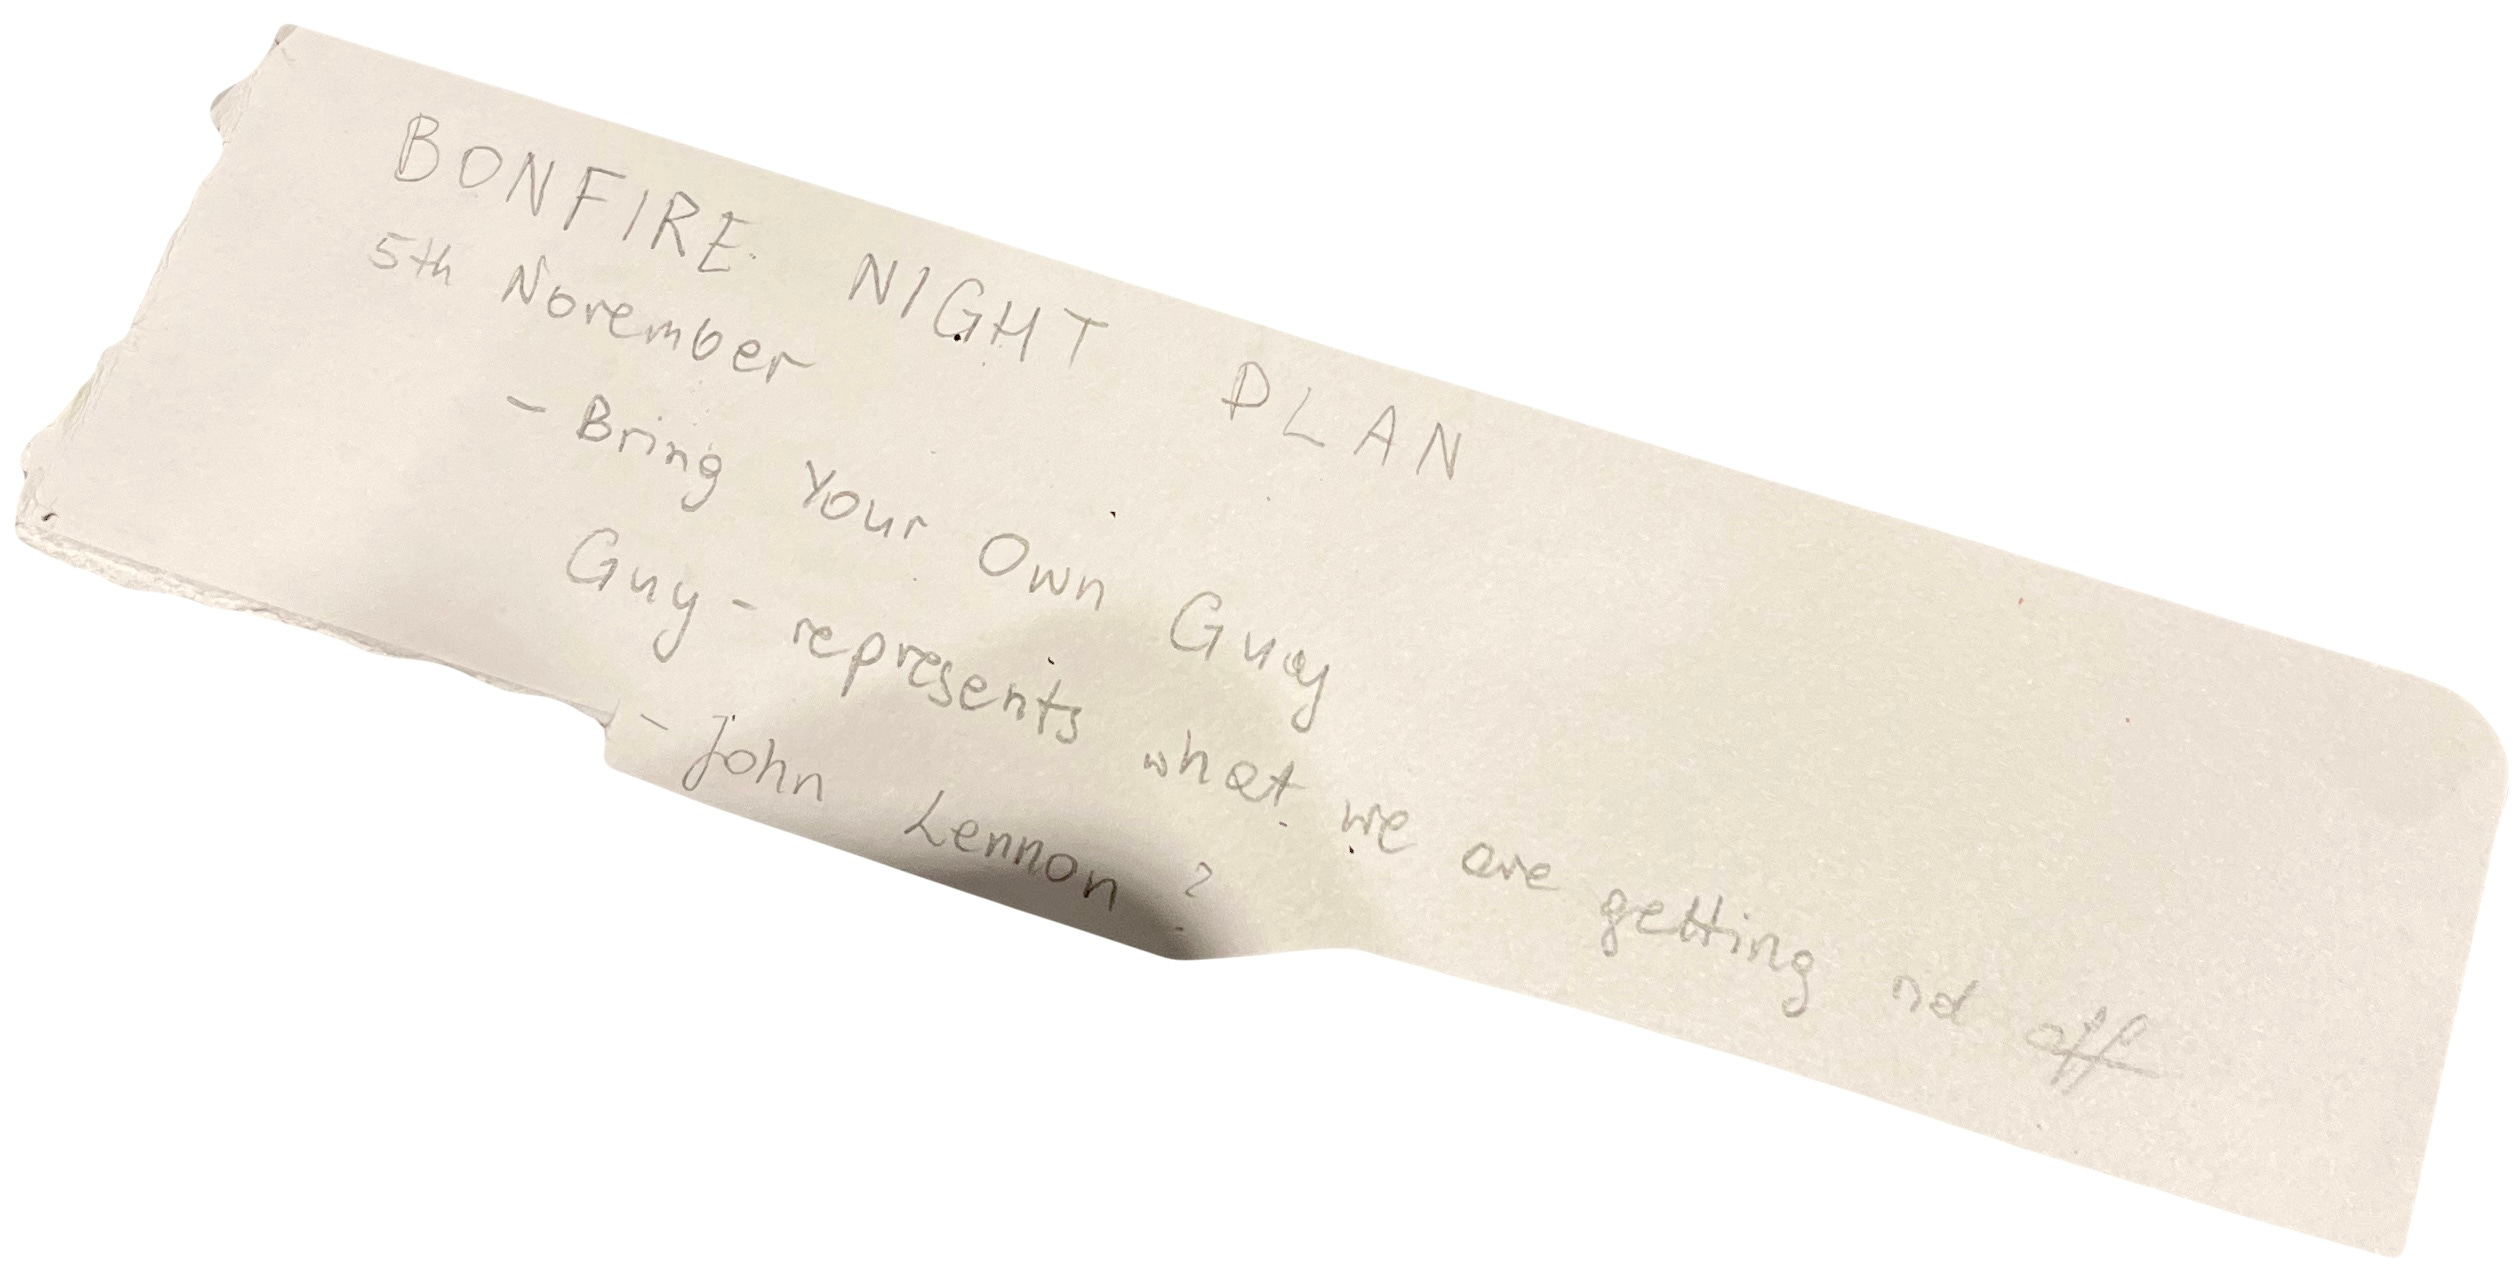 BONFIRE NIGHT PLAN
5th November
- Bring Your Own Guy
Guy - represents what we are getting rid off
- John Lennon ?